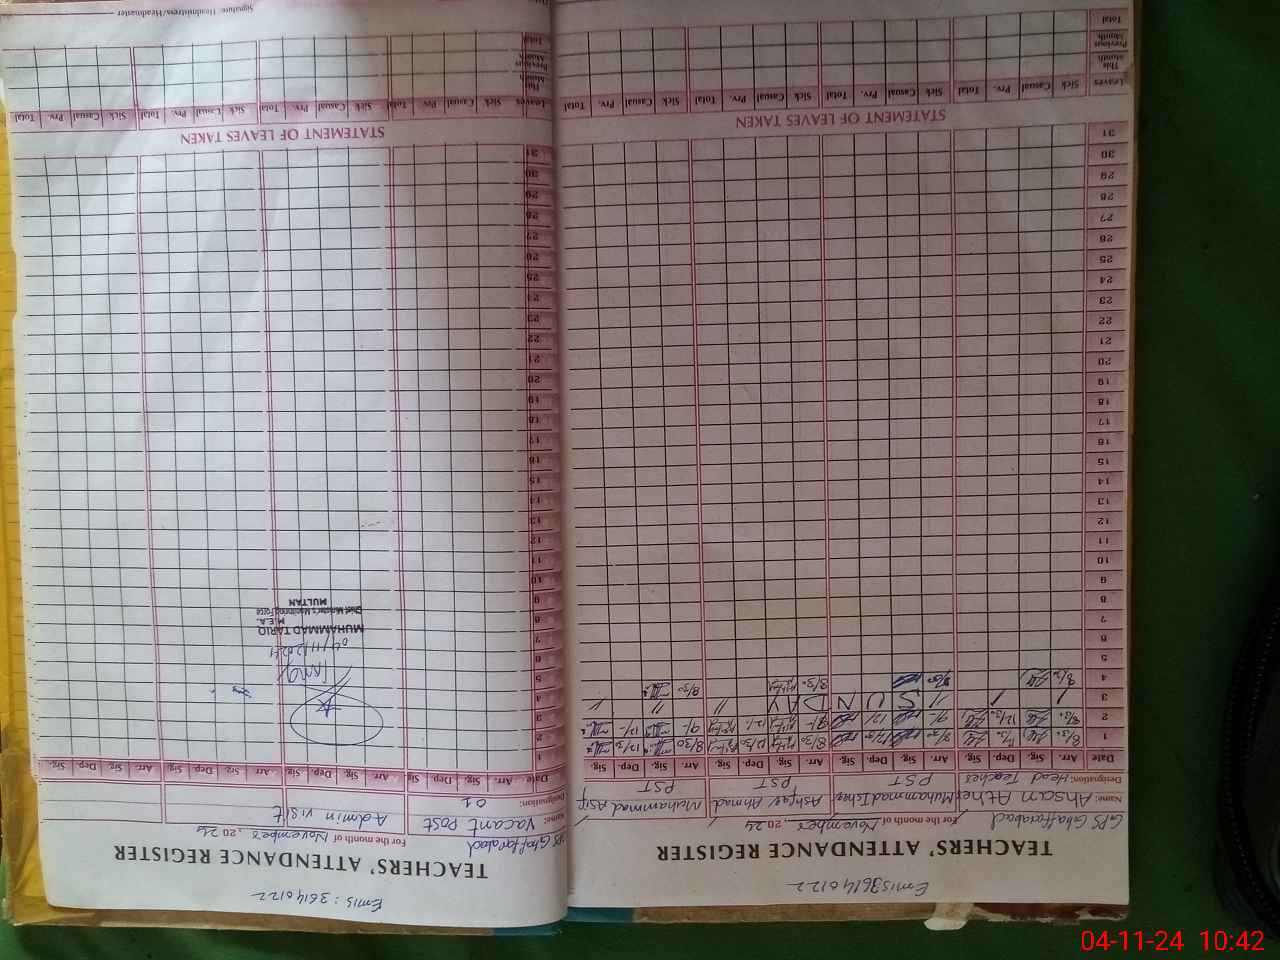 Emis 36140122
TEACHERS' ATTENDANCE REGISTER
GPS Ghaffarabad
For the month of November, 2024
Name: Ahsan Ather
Muhammad
Ashfaq Ahmad
Muhammad Asif
Designation: Head Teacher
PST
PST
PST
Date Arr. Sig. Dep. Sig. Arr. Sig. Dep. Sig. Arr. Sig. Dep. Sig. Arr. Sig. Dep. Sig.
1 8/30 8/30 12/30 8/30 12/30
2
3 S U N D A Y
4 8/30 8/30 8/30
5
6
7
8
9
10
11
12
13
14
15
16
17
18
19
20
21
22
23
24
25
26
27
28
29
30
31
STATEMENT OF LEAVES TAKEN
Leaves Sick Casual Prv. Total Sick Casual Prv. Total Sick Casual Prv. Total Sick Casual Prv. Total
This Month
Previous Month
Total
Emis: 36140122
TEACHERS' ATTENDANCE REGISTER
GPS Ghaffarabad
For the month of November, 2024
Name: Vacant Post
Admin visit
Designation: 01
Date Arr. Sig. Dep. Sig. Arr. Sig. Dep. Sig. Arr. Sig. Dep. Sig. Arr. Sig. Dep. Sig.
1
2
3
4
5
6
7
8
9
10
11
12
13
14
15
16
17
18
19
20
21
22
23
24
25
26
27
28
29
30
31
04/11/2024
MUHAMMAD TARIQ
M.E.A.
Chief Minister's Monitoring Force
MULTAN
STATEMENT OF LEAVES TAKEN
Leaves Sick Casual Prv. Total Sick Casual Prv. Total Sick Casual Prv. Total Sick Casual Prv. Total
This Month
Previous Month
Total
Signature Headmistress/Headmaster
04-11-24 10:42